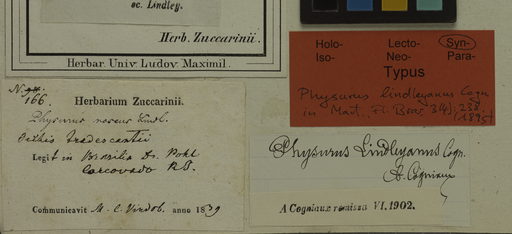 sc. Lindley.
Herb. Zuccarinii.
Herbar. Univ. Ludov. Maximil.
N.
166.
Herbarium Zuccarinii.
Physurus roseus Lindl.
Orchis tradescantii
Legit in Brasilia Dr. Pohl
Corcovado
Communicavit M. C. Vindob. anno 1839
Holo- Lecto- Syn-
Iso- Neo- Para-
Typus
Physurus lindleyanus Cogn.
in Mart. Fl. Bras. 3(4): 238
(1895)
Physurus Lindleyanus Cogn.
A. Cogniaux
A Cogniaux revisa VI. 1902.